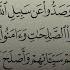 وَصَدُّوا۟ عَن سَبِيلِ
ٱلصَّٰلِحَٰتِ وَءَامَنُوا۟
سَيِّـَٔاتِهِمْ وَأَصْلَحَ